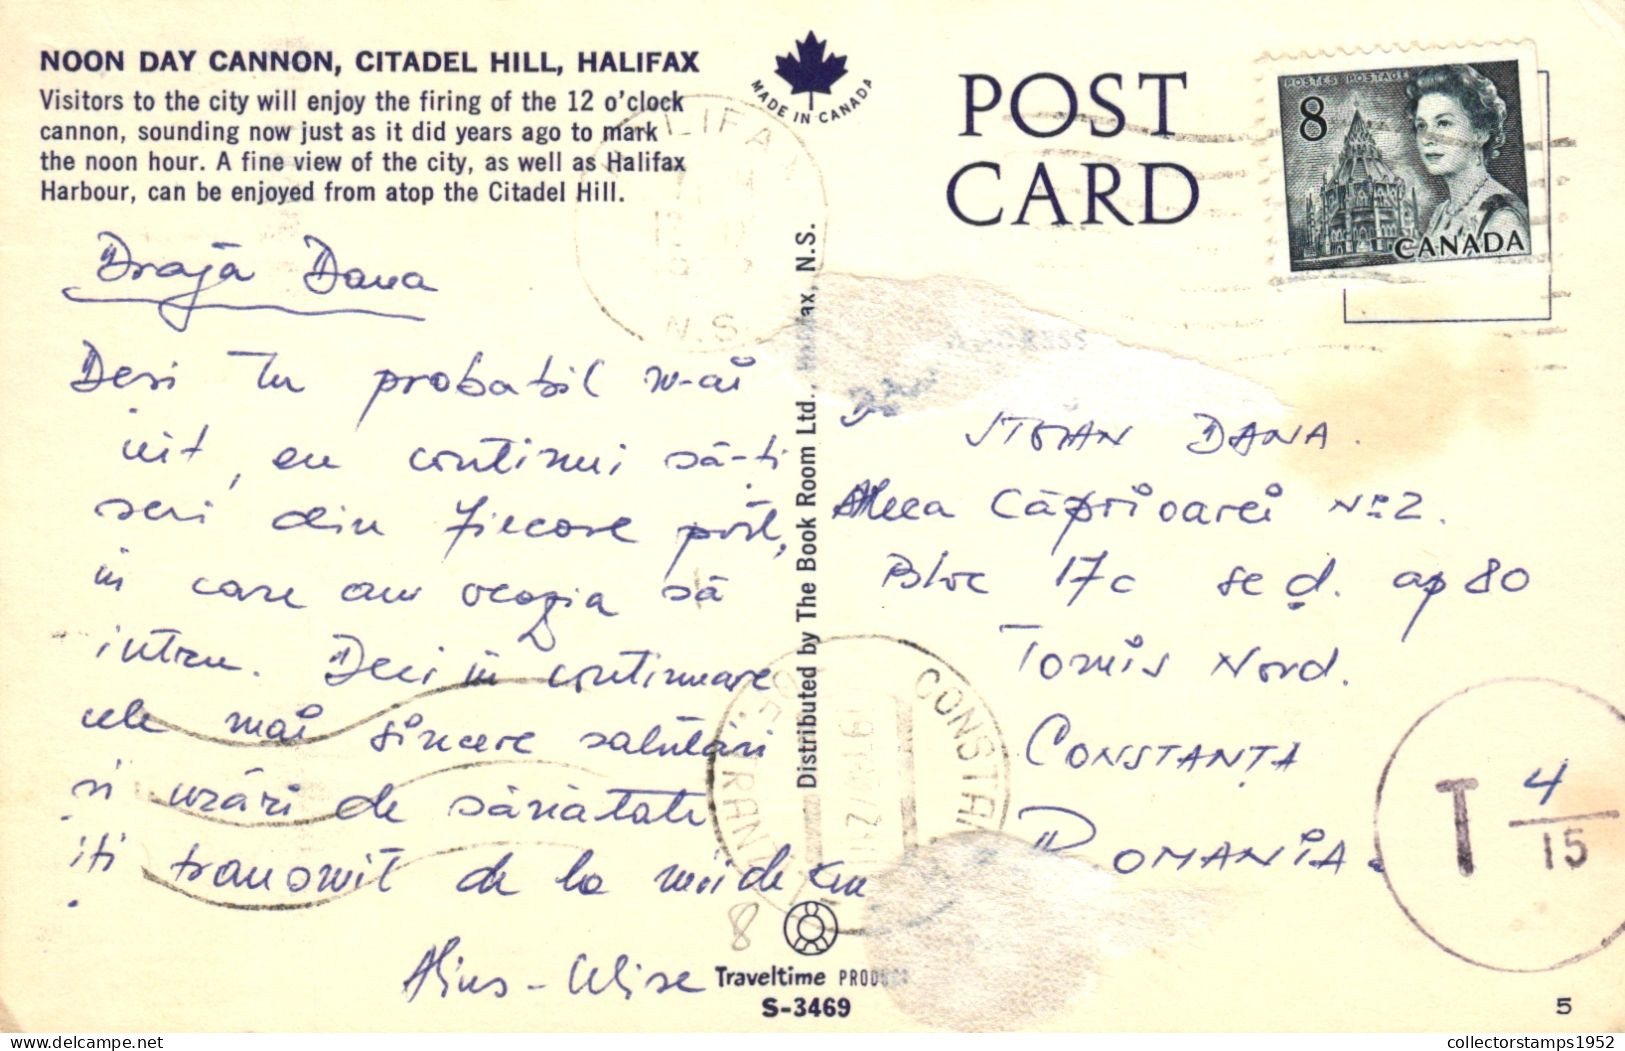 NOON DAY CANNON, CITADEL HILL, HALIFAX
Visitors to the city will enjoy the firing of the 12 o'clock
cannon, sounding now just as it did years ago to mark
the noon hour. A fine view of the city, as well as Halifax
Harbour, can be enjoyed from atop the Citadel Hill.
MADE IN CANADA
POST
CARD
POSTES POSTAGE
8
CANADA
HALIFAX
N.S.
Dragă Dana
Deși tu probabil n-ai
uit, eu continui să-ți
scriu din fiecare port,
în care am ocazia să
intru. Deci în continuare
cele mai sincere salutări
și urări de sănătate
îți transmit de la mii de km
Distributed by The Book Room Ltd., Halifax, N.S.
ADDRESS
STOIAN DANA.
Aleea Căprioarei Nr 2.
Bloc 17c sc d. ap 80
Tomis Nord.
CONSTANȚA
ROMANIA.
CONSTANȚA
T 4
15
8
Traveltime PRODUCT
S-3469
5
collectorstamps1952